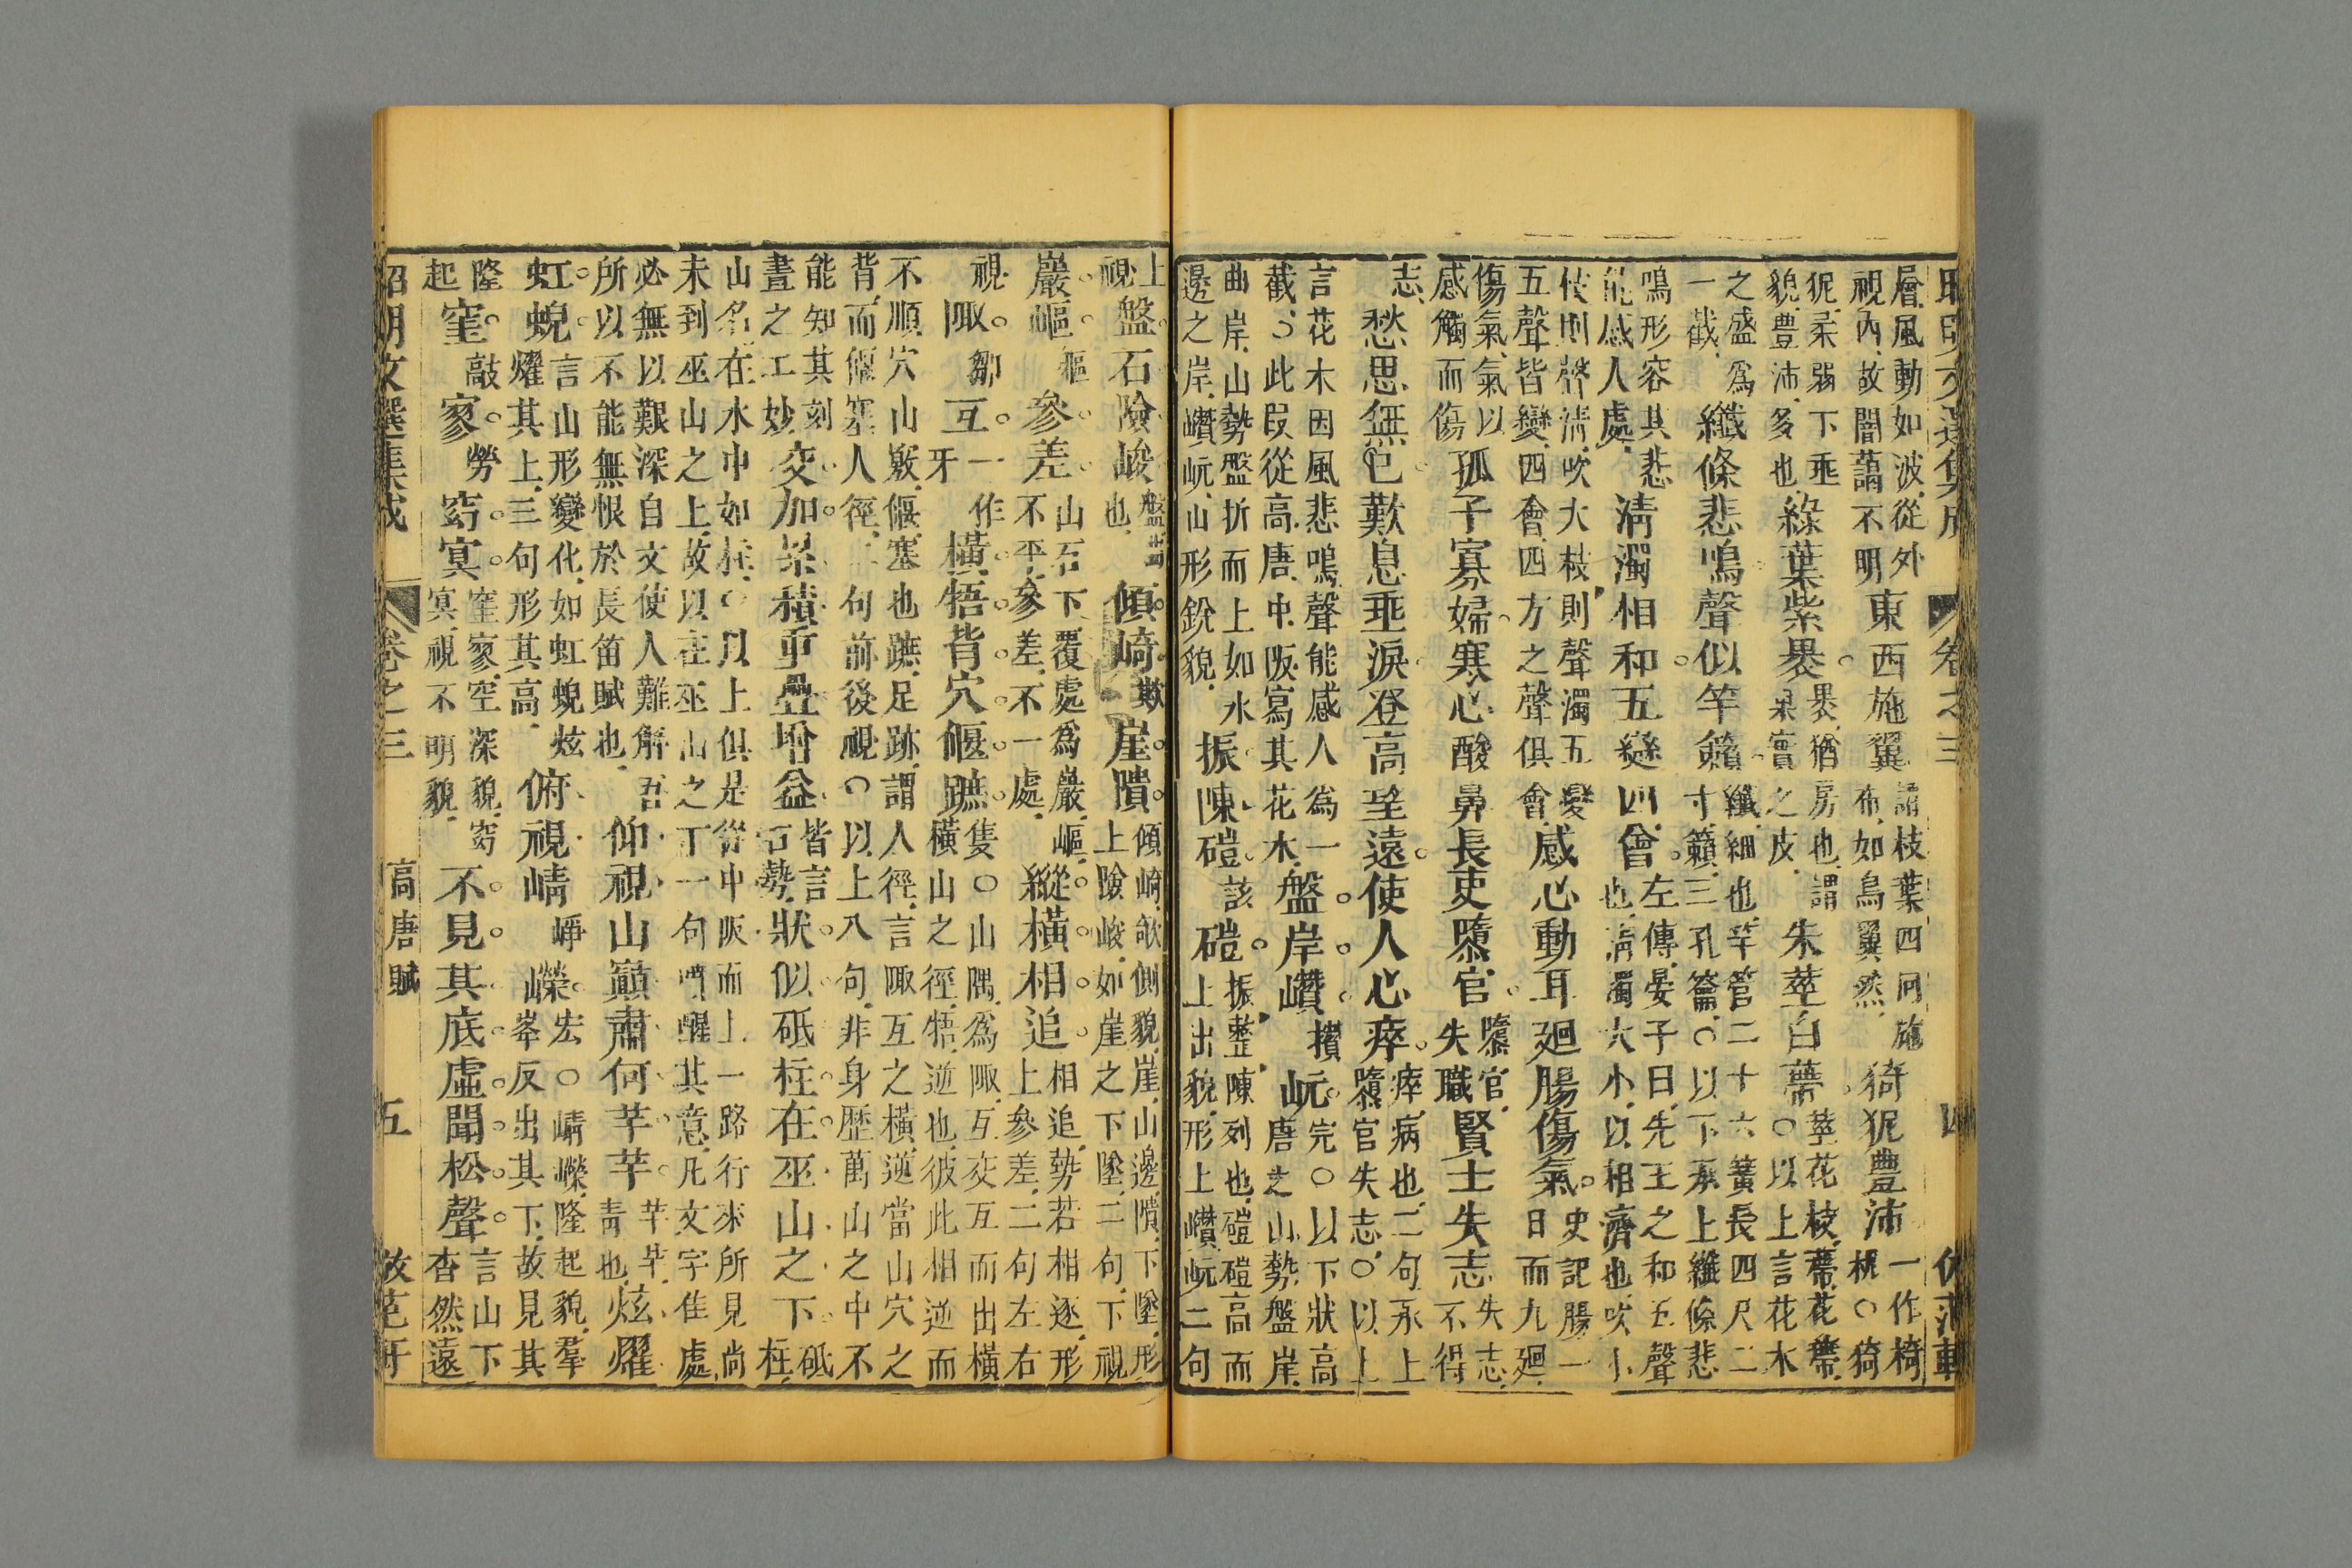 層風動如波從外視內故闇藹不明東西施翼謂枝葉四向施布如鳥翼然猗狔豐沛一作椅柅○猗
狔柔弱下垂貌豊沛多也綠葉紫褁褁猶房也謂果實之皮朱莖白蔕莖花枝蔕花蔕○以上言花木
之盛爲一截纖條悲鳴聲似竽籟纖細也竽管二十六簧長四尺二寸籟三孔籥○以下承上纖條悲
鳴形容其悲能感人處清濁相和五變四會左傳晏子曰先王之和五聲也清濁大小以相濟也吹小
枝則聲清吹大枝則聲濁五變五聲皆變四會四方之聲俱會感心動耳廻腸傷氣史記腸一日而九廻
傷氣氣以感觸而傷孤子寡婦寒心酸鼻長吏隳官隳官失職賢士失志失志不得
志愁思無已歎息垂淚登高望遠使人心瘁瘁病也二句承上隳官失志○以上
言花木因風悲鳴聲能感人爲一截○此段從高唐中阪寫其花木盤岸巑攢岏完○以下狀高唐之山勢盤岸
曲岸山勢盤折而上如水邊之岸巑岏山形銳貌振陳磑該磑振整陳列也磑磑高而上出貌形上巑岏二句
上視盤石險峻盤石也傾崎欺崖隤傾崎欹側貌崖山邊隤下墜形上險峻如崖之下墜二句下視
巖嶇樞參差山石下覆處爲巖嶇不平參差不一處縱橫相追相追勢若相逐形上參差二句左右
視陬鄒互一作牙橫牾背穴偃蹠隻○山隅爲陬互交互而出橫橫山之徑牾逆也彼此相逆而
不順穴山竅偃塞也蹠足跡謂人徑言陬互之橫逆當山穴之背而偃塞人徑二句前後視○以上八句非身歷萬山之中不
能知其刻畫之工妙交加累積重疊增益皆言石勢狀似砥柱在巫山之下砥柱
山名在水中如柱○以上俱是從中阪而上一路行來所見尚未到巫山之上故以在巫山之下一句點醒其意凡文字佳處
必無以艱深自文使人難解吾所以不能無恨於長笛賦也仰視山巔肅何芊芊芊芊青也炫燿
虹蜺言山形變化如虹蜺炫燿其上三句形其高俯視崝崢嶸宏○崝嶸隆起貌窐反出其下故見其
隆起窐敲寥勞窈冥窐寥空深貌窈冥視不明貌不見其底虛聞松聲言山下杳然遠
昭明文選集成
卷之三
高唐賦
五